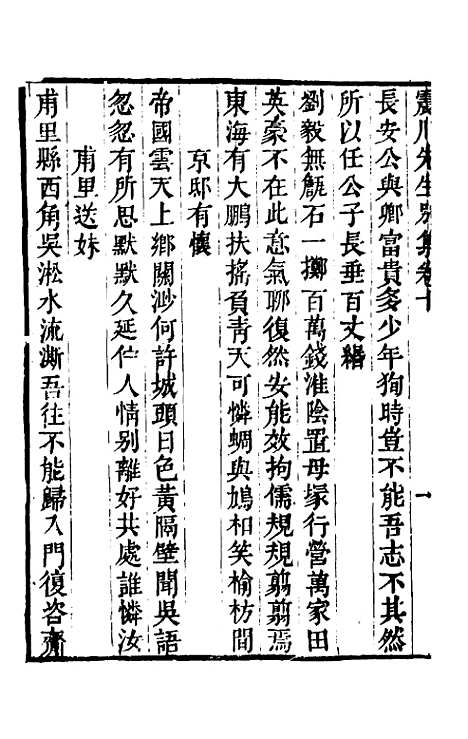 震川先生別集卷十
一
長安公與卿富貴多少年狥時豈不能吾志不其然
所以任公子長垂百丈緡
劉毅無甔石一擲百萬錢淮陰置母塚行營萬家田
英豪不在此意氣聊復然安能效拘儒規規翦翦焉
東海有大鵬扶搖負青天可憐蜩與鳩相笑榆枋間
京邸有懷
帝國雲天上鄉關渺何許城頭日色黃隔壁聞吳語
忽忽有所思默默久延伫人情別離好共處誰憐汝
甫里送妹
甫里縣西角吳淞水流澌吾往不能歸入門復咨齊